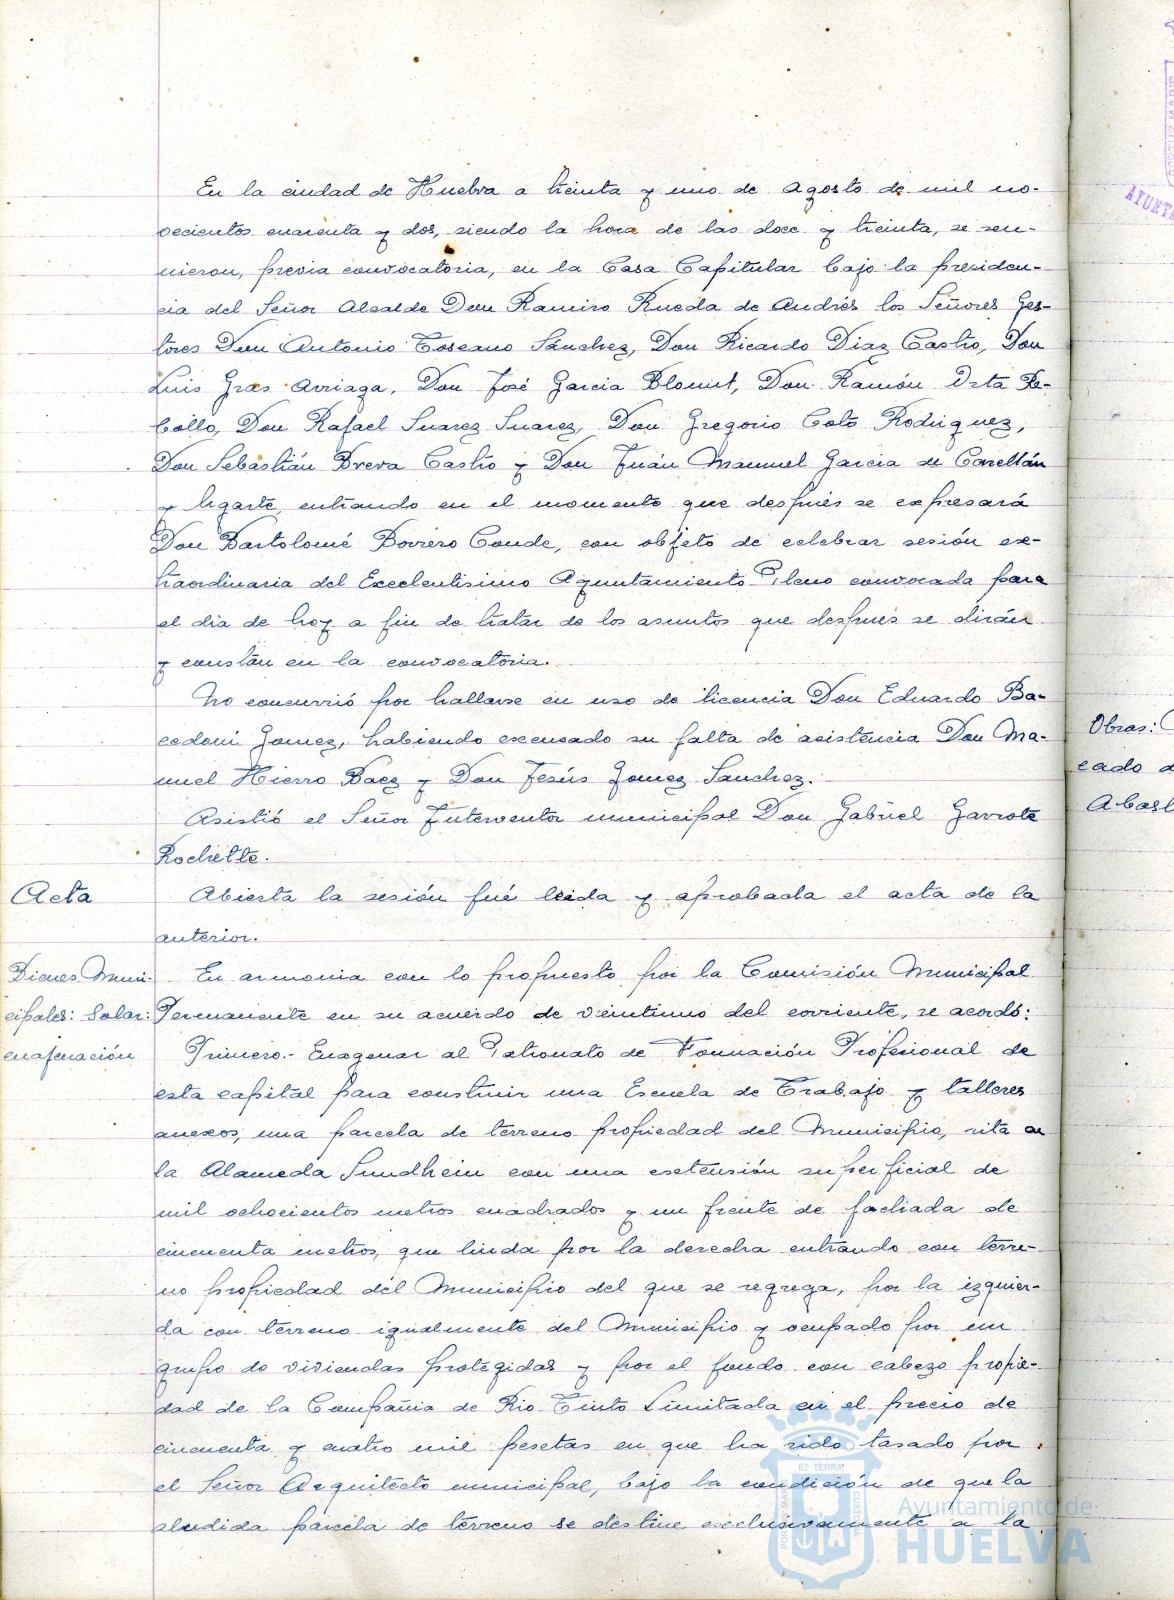 En la ciudad de Huelva a treinta y uno de Agosto de mil no-
vecientos cuarenta y dos, siendo la hora de las doce y treinta, se reu-
nieron, previa convocatoria, en la Casa Capitular bajo la presiden-
cia del Señor Alcalde Don Ramiro Rueda de Andrés los Señores Ges-
tores Don Antonio Toscano Sánchez, Don Ricardo Diaz Castro, Don
Luis Gras Arriaga, Don José Garcia Blomut, Don Ramón Orta Re-
bollo, Don Rafael Suarez Suarez, Don Gregorio Coto Rodriguez,
Don Sebastián Breva Castro y Don Juán Manuel Garcia de Castellán
y Ugarte, entrando en el momento que después se expresará
Don Bartolomé Borrero Conde, con objeto de celebrar sesión ex-
traordinaria del Excelentisimo Ayuntamiento Pleno convocada para
el dia de hoy a fin de tratar de los asuntos que después se dirán
y constan en la convocatoria.
No concurrió por hallarse en uso de licencia Don Eduardo Ba-
cedoni Gomez, habiendo excusado su falta de asistencia Don Ma-
nuel Hierro Baez y Don Jesús Gomez Sanchez.
Asistió el Señor Interventor municipal Don Gabriel Garrote
Rochette.
Acta
Abierta la sesión fué leida y aprobada el acta de la
anterior.
Bienes Muni-
cipales: Solar:
enajenación
En armonia con lo propuesto por la Comisión Municipal
Permanente en su acuerdo de veintiuno del corriente, se acordó:
Primero.- Enagenar al Patronato de Formación Profesional de
esta capital para construir una Escuela de Trabajo y talleres
anexos, una parcela de terreno propiedad del Municipio, sita en
la Alameda Sundhein con una extensión superficial de
mil ochocientos metros cuadrados y un frente de fachada de
cincuenta metros, que linda por la derecha entrando con terre-
no propiedad del Municipio del que se segrega, por la izquier-
da con terreno igualmente del Municipio y ocupado por un
grupo de viviendas protegidas y por el fondo con cabezo propie-
dad de la Compañia de Rio Tinto Limitada en el precio de
cincuenta y cuatro mil pesetas en que ha sido tasado por
el Señor Arquitecto municipal, bajo la condición de que la
aludida parcela de terreno se destine exclusivamente a la
Obras:
cado d
Abast
AYUNTA
ET TERRA
Ayuntamiento de
HUELVA